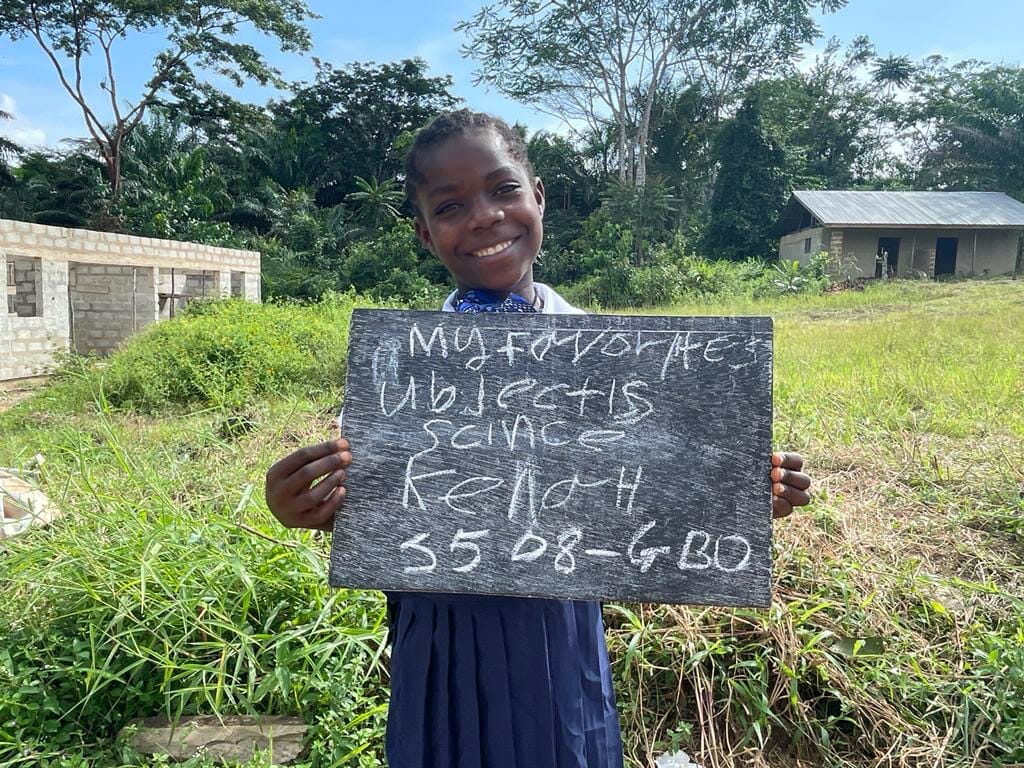 My FavoritE S
UbJectIs
Scince
KeNaH
SS08-GBO